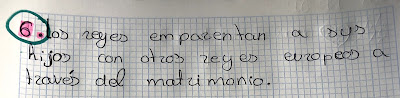 6. Los reyes emparentan a sus
hijos con otros reyes europeos a
través del matrimonio.